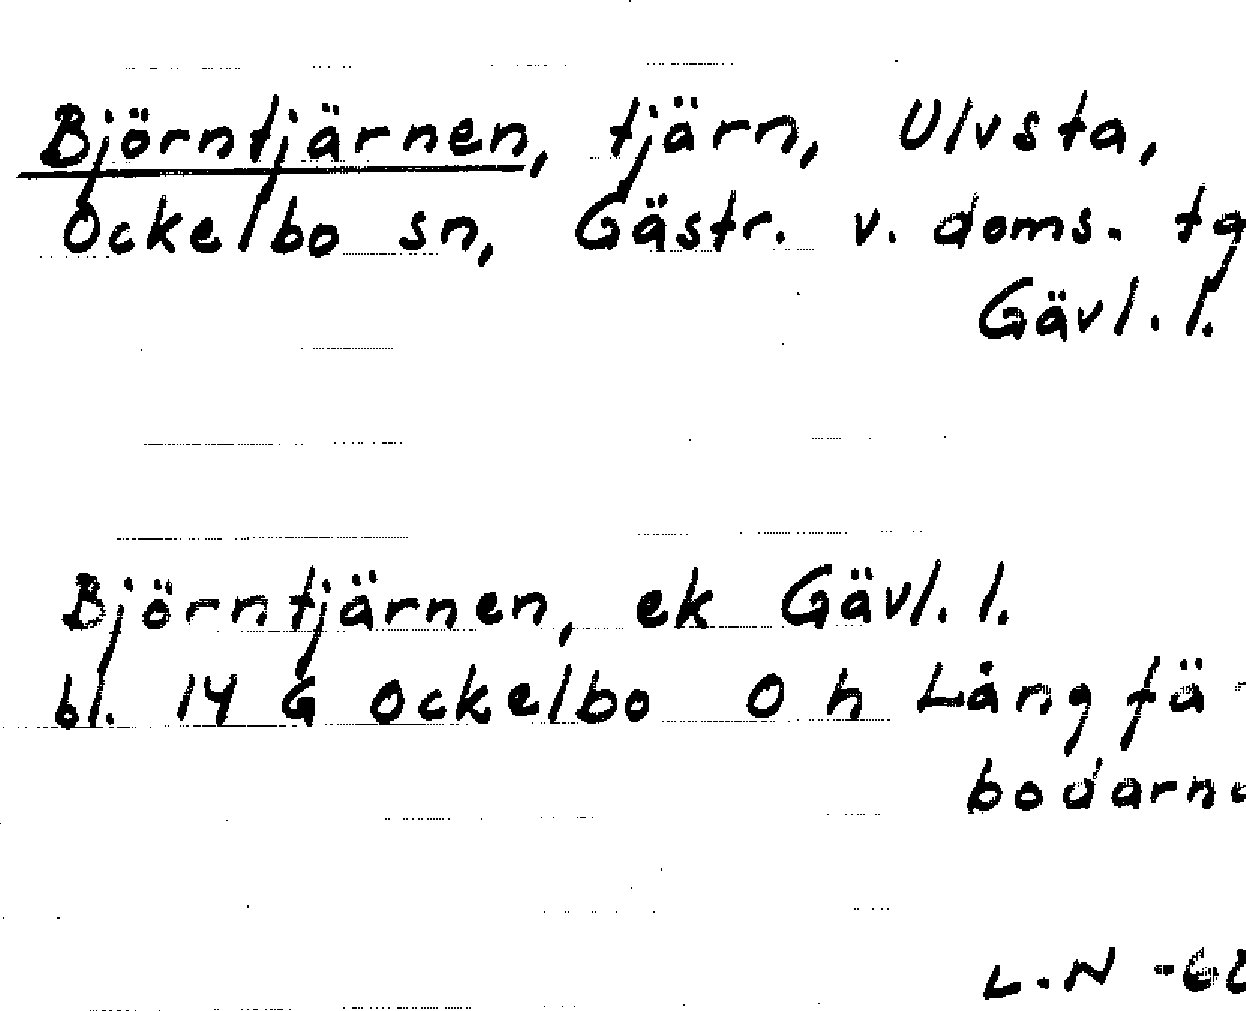 Björntjärnen, tjärn, Ulvsta,
Ockelbo sn, Gästr. v. doms. tg
Gävl. l.
Björntjärnen, ek Gävl. l.
bl. 14 G Ockelbo 0 h Långfä-
bodarna
L.N